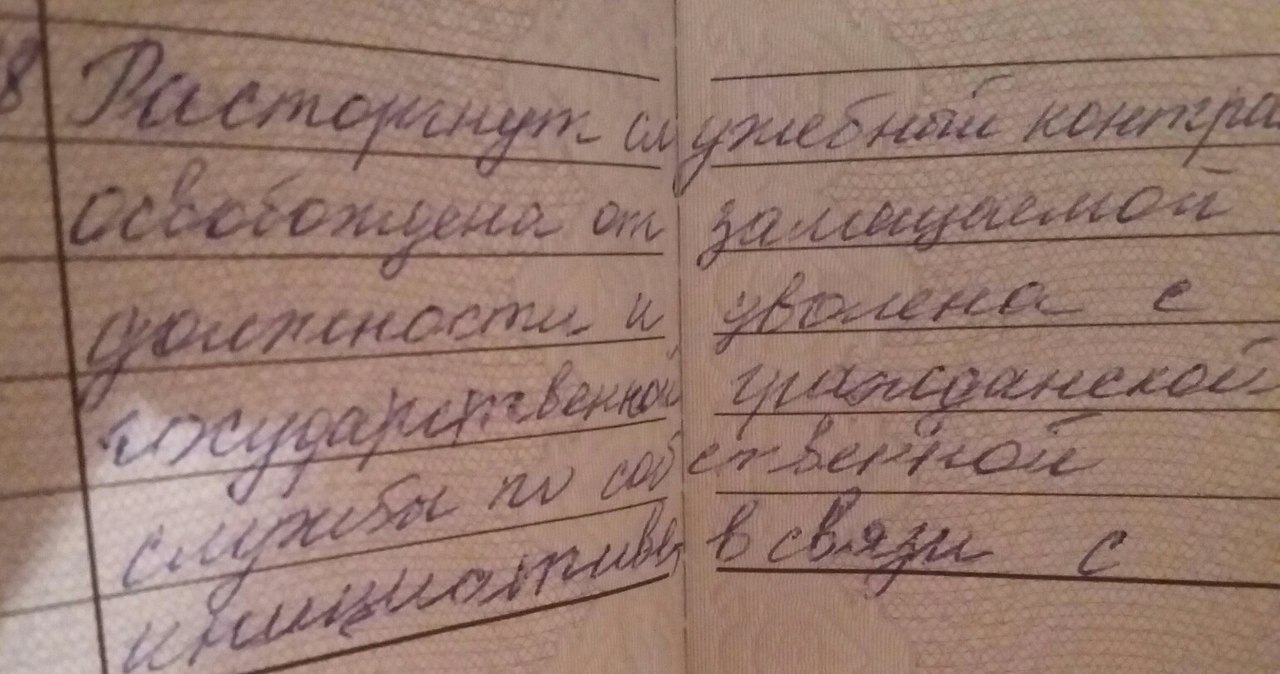 8 Расторгнут служебный контра
освобождена от замещаемой
должности и уволена с
государственной гражданской
службы по собственной
инициативе в связи с